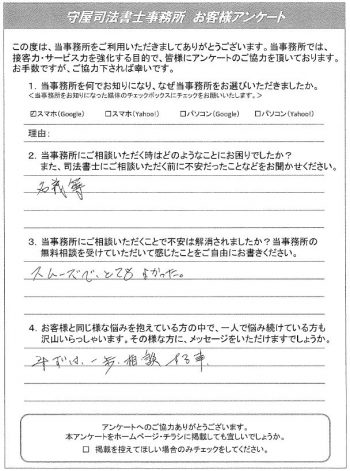 守屋司法書士事務所 お客様アンケート
この度は、当事務所をご利用いただきましてありがとうございます。当事務所では、
接客力・サービス力を強化する目的で、皆様にアンケートのご協力を頂いております。
お手数ですが、ご協力下されば幸いです。
1. 当事務所を何でお知りになり、なぜ当事務所をお選びいただきましたか。
<当事務所をお知りになった媒体のチェックボックスにチェックをお願いいたします。>
☑スマホ(Google) □スマホ(Yahoo!) □パソコン(Google) □パソコン(Yahoo!)
理由:
2. 当事務所にご相談いただく時はどのようなことにお困りでしたか?
また、司法書士にご相談いただく前に不安だったことなどをお聞かせください。
名義等
3. 当事務所にご相談いただくことで不安は解消されましたか?当事務所の
無料相談を受けていただいて感じたことをご自由にお書きください。
スムーズで、とても よかった。
4. お客様と同じ様な悩みを抱えている方の中で、一人で悩み続けている方も
沢山いらっしゃいます。その様な方に、メッセージをいただけますでしょうか。
まずは、一歩、相談 する事。
アンケートへのご協力ありがとうございます。
本アンケートをホームページ・チラシに掲載しても宜しいでしょうか。
□ 掲載を控えてほしい場合のみチェックをしてください。